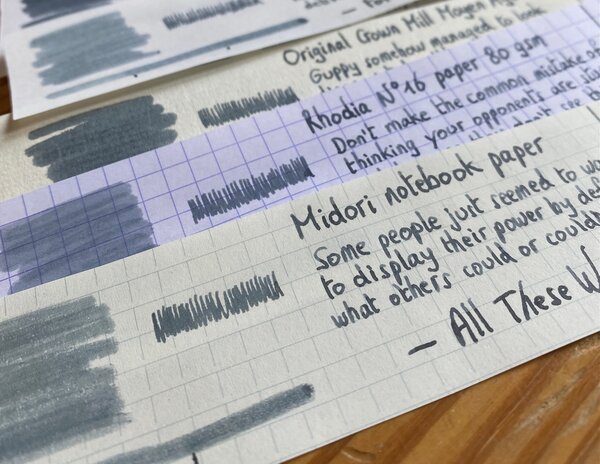 Original Crown Mill
Guppy somehow managed to
Rhodia N°16 paper 80 gsm
Don't make the common mistake of
thinking your opponents are
Midori notebook paper
Some people just seemed to
to display their power by
what others could or
— All These